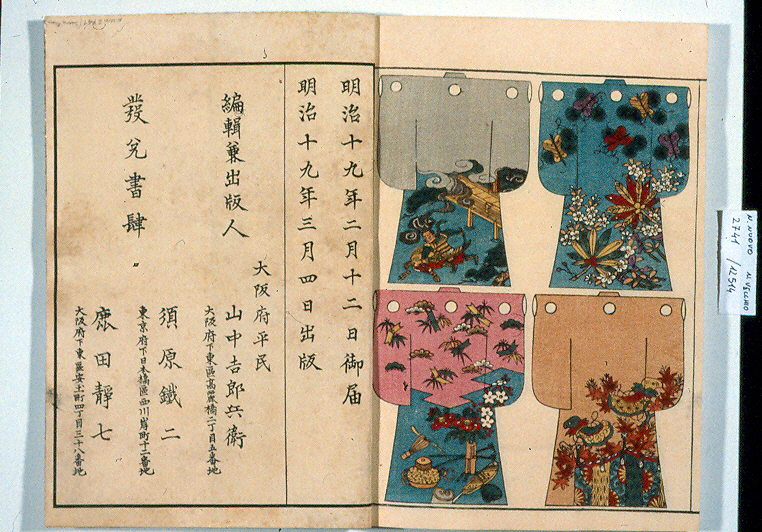 明治十九年二月十二日御届
明治十九年三月四日出版
大阪府平民
編輯兼出版人
山中吉郎兵衛
大阪府下東區高麗橋二丁目五番地
發兌書肆
須原鐵二
東京府下日本橋區西川岸町十二番地
鹿田靜七
大阪府下東區安土町四丁目三十八番地
N. NUOVO N. VECCHIO
2741 / 12514